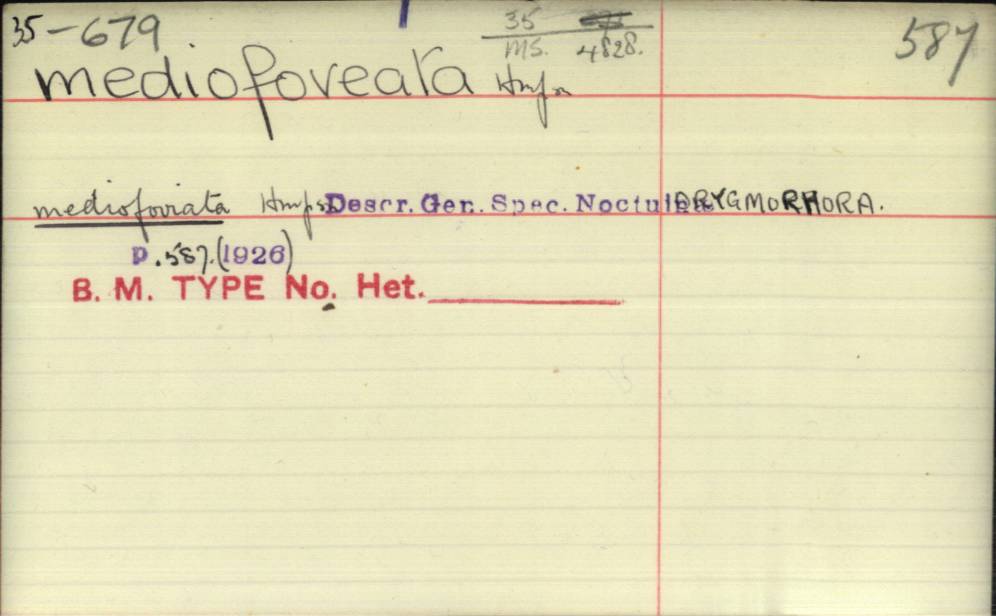 35-679
35
MS. 4828.
587
mediofoveata Hmpsn
mediofoviata Hmpsn Descr. Gen. Spec. Noctuidae ORYGMOPHORA.
p. 587. (1926)
B. M. TYPE No. Het.